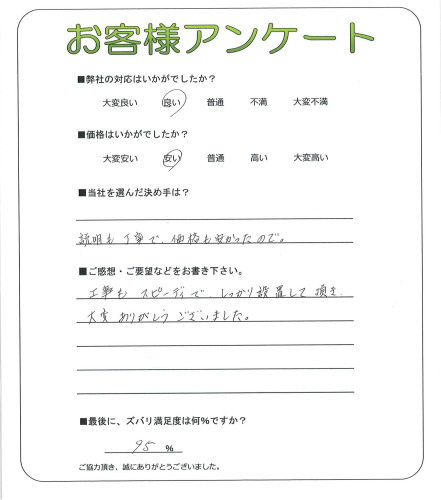 お客様アンケート
■弊社の対応はいかがでしたか?
大変良い 良い 普通 不満 大変不満
■価格はいかがでしたか?
大変安い 安い 普通 高い 大変高い
■当社を選んだ決め手は?
説明も丁寧で、価格も安かったので。
■ご感想・ご要望などをお書き下さい。
工事もスピーディで、しっかり設置して頂き、
大変ありがとうございました。
■最後に、ズバリ満足度は何%ですか?
95 %
ご協力頂き、誠にありがとうございました。